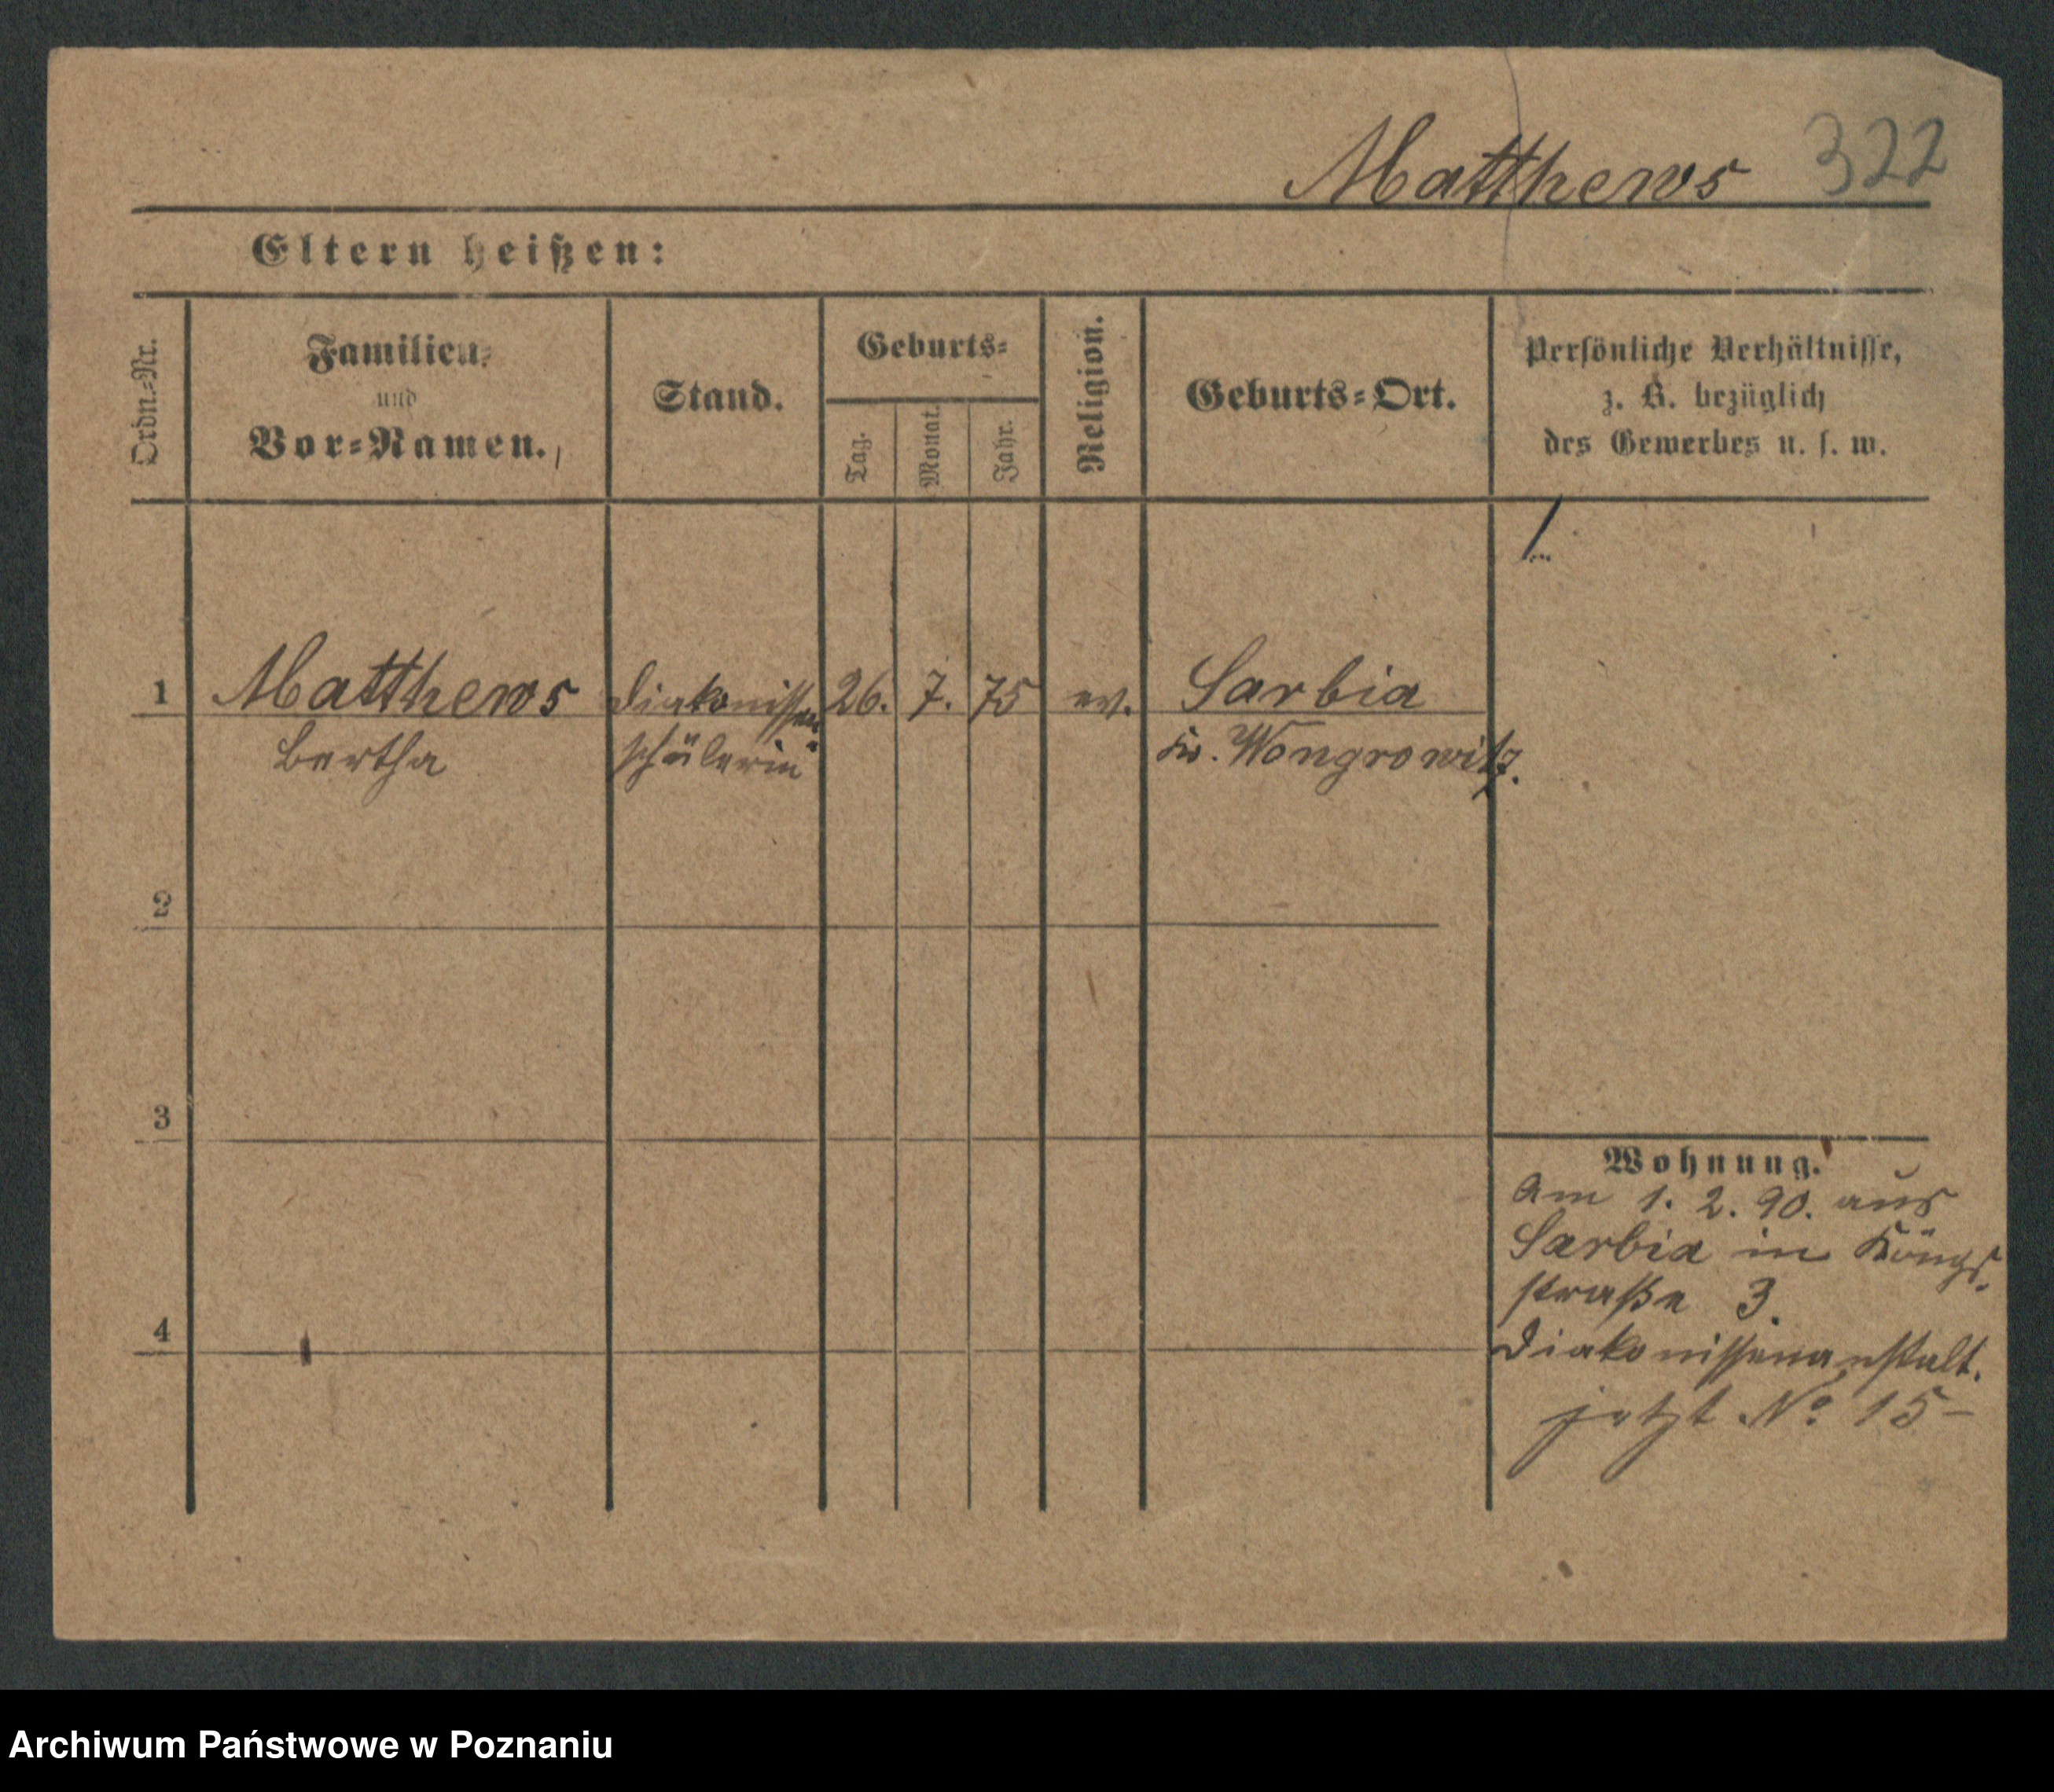 Matthews 322
Eltern heißen:
Ordn.-Nr.
Familien-
und
Vor-Namen.
Stand.
Geburts-
Tag.
Monat.
Jahr.
Religion.
Geburts-Ort.
Persönliche Verhältnisse,
z. B. bezüglich
des Gewerbes u. s. w.
1 Matthews Diakonissen 26. 7. 75 ev. Sarbia
Bertha schülerin Kr. Wongrowitz.
2
3
4
Wohnung.
Am 1. 2. 90. aus
Sarbia in Köngs
straße 3.
Diakonissenanstalt.
jetzt No 15-
Archiwum Państwowe w Poznaniu